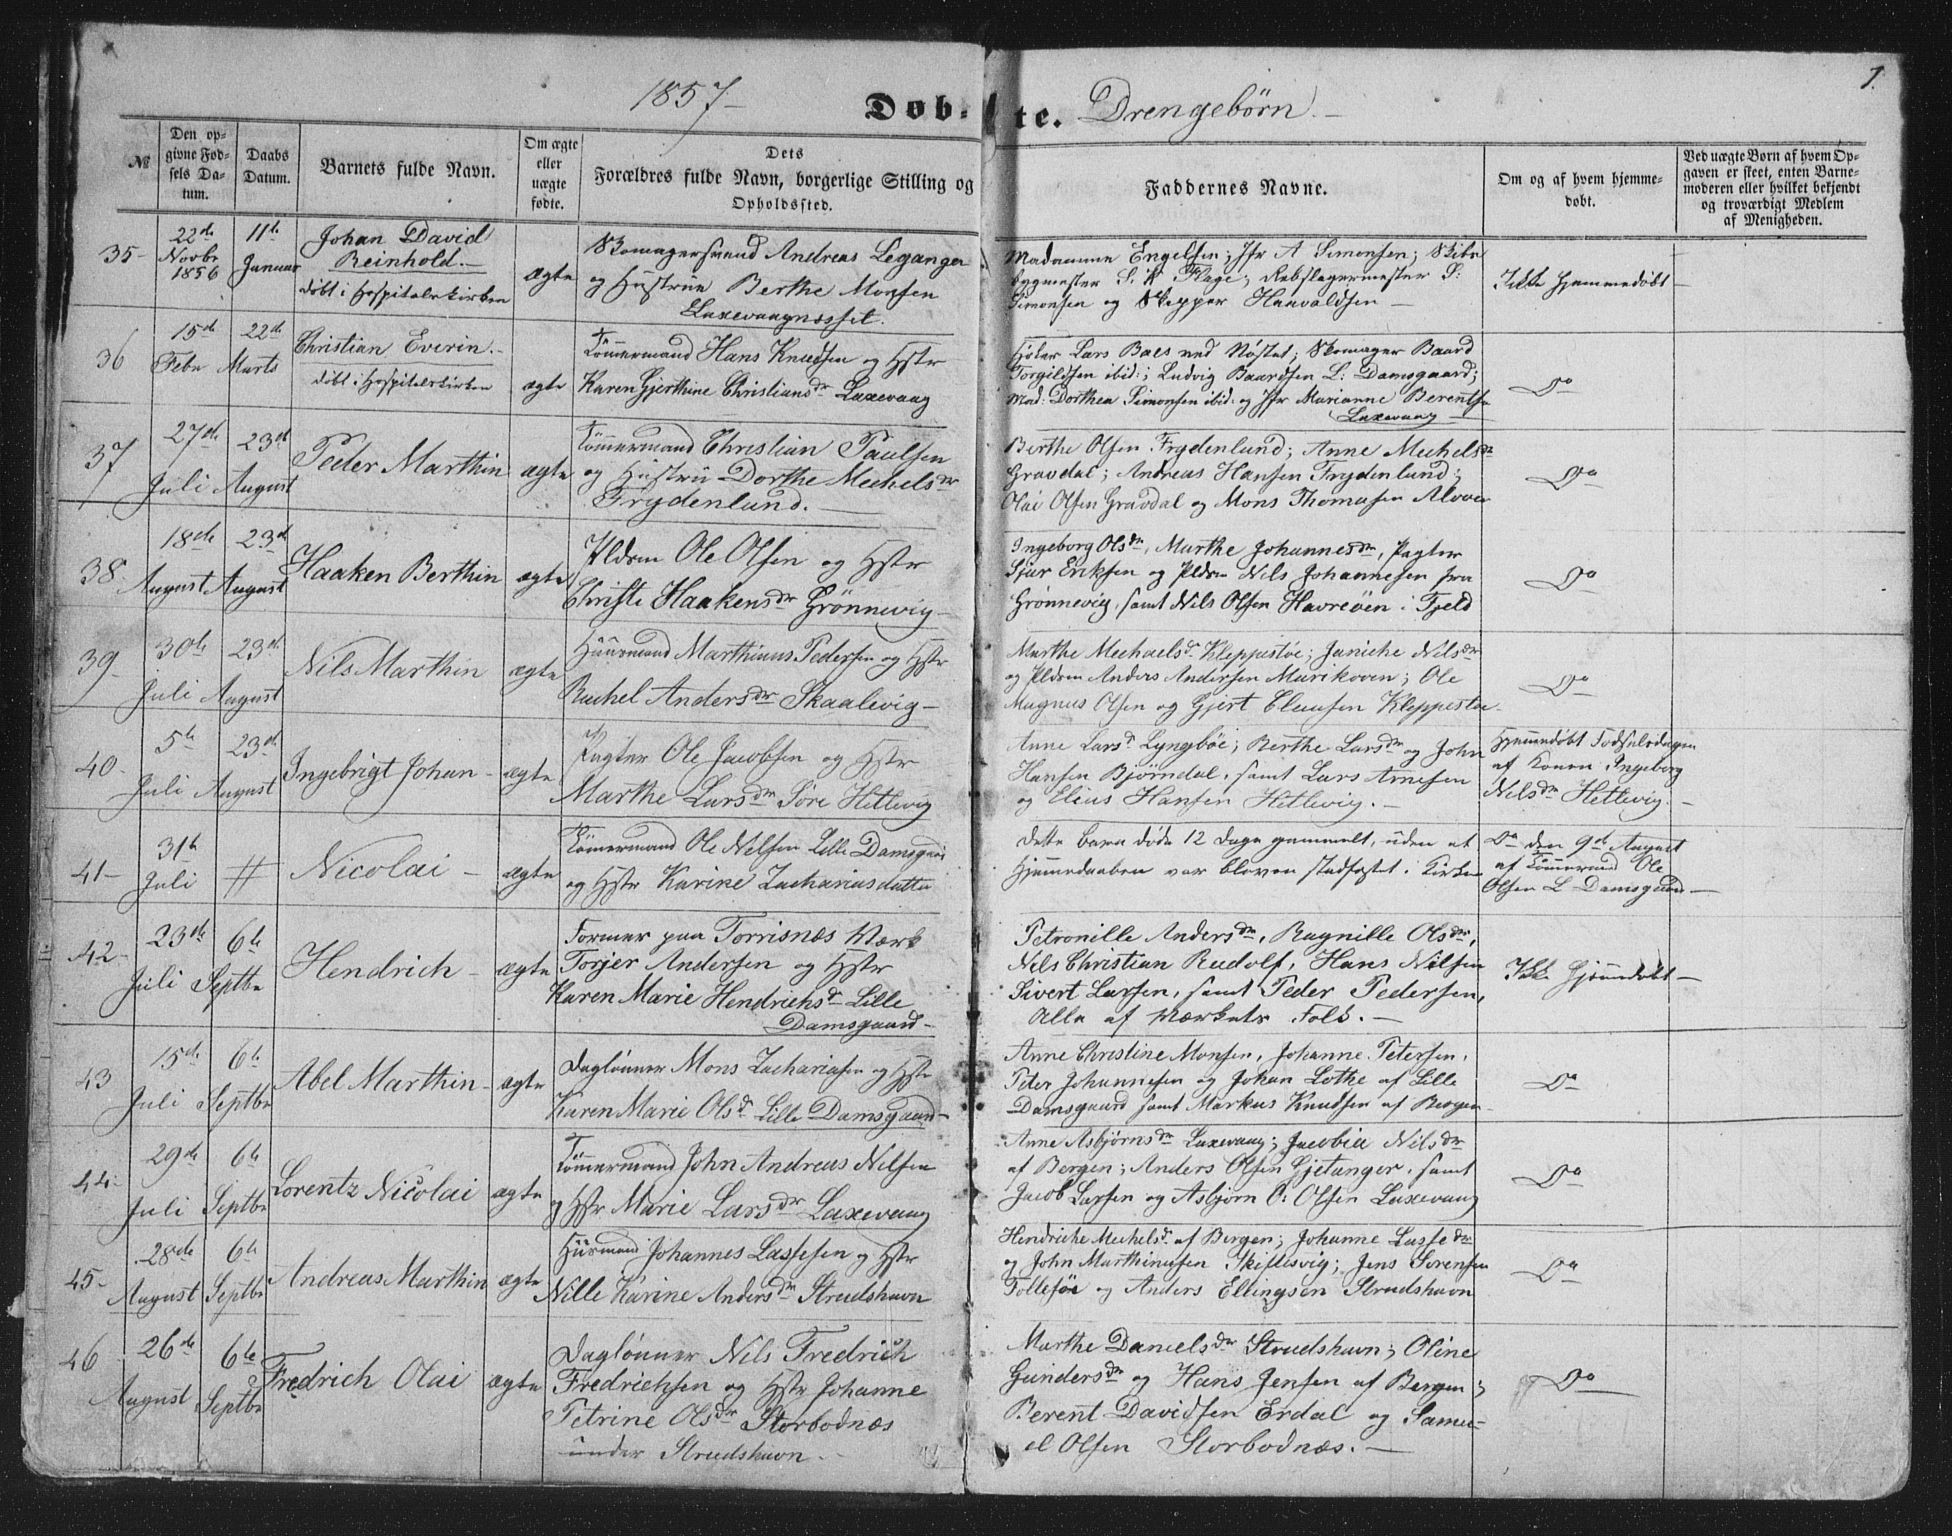 1857 –
Døb-
te. Drengebørn. –
1.
№
Den op-
givne Fød-
sels Da-
tum.
Daabs
Datum.
Barnets fulde Navn.
Om ægte
eller
uægte
fødte.
Dets
Forældres fulde Navn, borgerlige Stilling og
Opholdssted.
Faddernes Navne.
Om og af hvem hjemme-
døbt.
Ved uægte Børn af hvem Op-
gaven er skeet, enten Barne-
moderen eller hvilket bekjendt
og troværdigt Medlem
af Menigheden.
35-
22de
Novbr
1856
11te
Januar
Johan David
Reinhold. –
døbt i Hospitalskirken
ægte
Skomagersvend Andreas Leganger
og Hustrue Berthe Monsen
Laxevaagnæsset.
Madamme Engelsen; Jfr A Simonsen; Skibs
bygmester S. K Flage; Rebslagermester S:
Simonsen og Skipper Haavaldsen –
Ikke hjemmedøbt –
36
15de
Febr
22de
Marts
Christian Everin. –
døbt i Hospitalskirken
ægte
Tömmermand Hans Knudsen og Hstr
Karen Gjerthine Christiansdr Laxevaag
Lars Baes ved Nøstet; Skomager Baard
Torgildsen ibid:; Ludvig Baardsen L: Damsgaard;
Mad: Dorthea Simonsen ibid: og Jfr Marianne Berentsen
Laxevaag –
Do
37
27de
Juli
23de
August
Peder Marthin
ægte
Tömmermand Christian Paulsen
og Hustru Dorthe Mechelsdr
Frydenlund. –
Berthe Olsen Frydenlund; Anne Mechelsdr
Gravdal; Andreas Hansen Frydenlund;
Olai Olsen Gravdal og Mons Thomasen Alvøen
Do
38
18de
August
23de
August
Haaken Berthin
ægte
Pldsm Ole Olsen og Hstr
Christi Haakensdr Grönnevig –
Ingeborg Olsdr, Marthe Johannesdr, Pagter
Sjur Eriksen og Pldsm Nils Johannesen fra
Grönnevig, samt Nils Olsen Havreøen i Fjeld
Do
39
30de
Juli
23de
August
Nils Marthin
ægte
Huusmand Marthinus Pedersen og Hstr
Rachel Andersdr Skaalevig –
Marthe Mechaelsdr Kleppestøe; Janiche Nilsdr
og Pldsm Anders Andersen Marikoven; Ole
Magnus Olsen og Gjert Clausen Kleppestøe
Do
40
5te
Juli
23de
August
Ingebrigt Johan –
ægte
Pagter Ole Jacobsen og Hstr
Marthe Larsdr Søre Hetlevig
Anne Larsdr Lyngbøe; Berthe Larsdr og John
Hansen Bjørndal, samt Lars Arnesen
og Elius Hansen Hetlevig. –
Hjemmedøbt Fødselsdagen
af Konen Ingeborg
Nelsdr Hetlevig. –
41-
31te
Juli
#
Nicolai –
ægte
Tömmermand Ole Nelsen Lille Damsgaard
og Hstr Karine Zachariasdatter
dette barn døde 12 Dage gammelt, uden at
Hjemmedaaben var bleven stadfæstet i Kirken
Do den 9de August
af Tömmermd Ole
Olsen L Damsgaard –
42-
23de
Juli
6te
Septbr
Hendrich –
ægte
Former paa Torrisnæs Værk
Torjer Andersen og Hstr
Karen Marie Hendrichsdr Lille
Damsgaard –
Petronille Andersdr, Ragnille Olsdr,
Nils Christian Rudolf, Hans Nilsen
Sivert Larsen, samt Peder Pedersen,
Alle af Værkets Folk. –
Ikke hjemmedøbt –
43
15de
Juli
6te
Septbr
Abel Marthin –
ægte
Daglønner Mons Zachariasen og Hstr
Karen Marie Olsdr Lille Damsgaard –
Anne Christine Monsen, Johanne Petersen,
Peter Johannesen og Johan Lothe af Lille
Damsgaard samt Markus Knudsen af Bergen –
Do
44-
29de
Juli
6te
Septbr
Lorentz Nicolai
ægte
Tömmermand John Andreas Nilsen
og Hstr Marie Larsdr Laxevaag
Anne Asbjørnsdr Laxevaag; Jacobia Nilsdr
af Bergen; Anders Olsen Gjetanger, samt
Jacob Larsen og Asbjørn O: Olsen Laxevaag
Do
45-
28de
August
6te
Septbr
Andreas Marthin
ægte
Husmand Johannes Lassesen og Hstr
Nille Karine Andersdr Strudshavn
Hendriche Mechelsdr af Bergen; Johanne Lassedr
og John Marthinusen Skiftesvig; Jens Sørensen
Follesøe og Anders Ellingsen Strudshavn
Do
46
26de
August
6te
Septbr
Fredrich Olai
ægte
Daglønner Nils Fredrich
Fredrichsen og Hstr Johanne
Petrine Olsdr Storbodnæs
under Strudshavn –
Marthe Danielsdr Strudshavn; Oline
Gundersdr og Hans Jensen af Bergen;
Berent Davidsen Erdal og Samu-
el Olsen Storbodnæs. –
Do